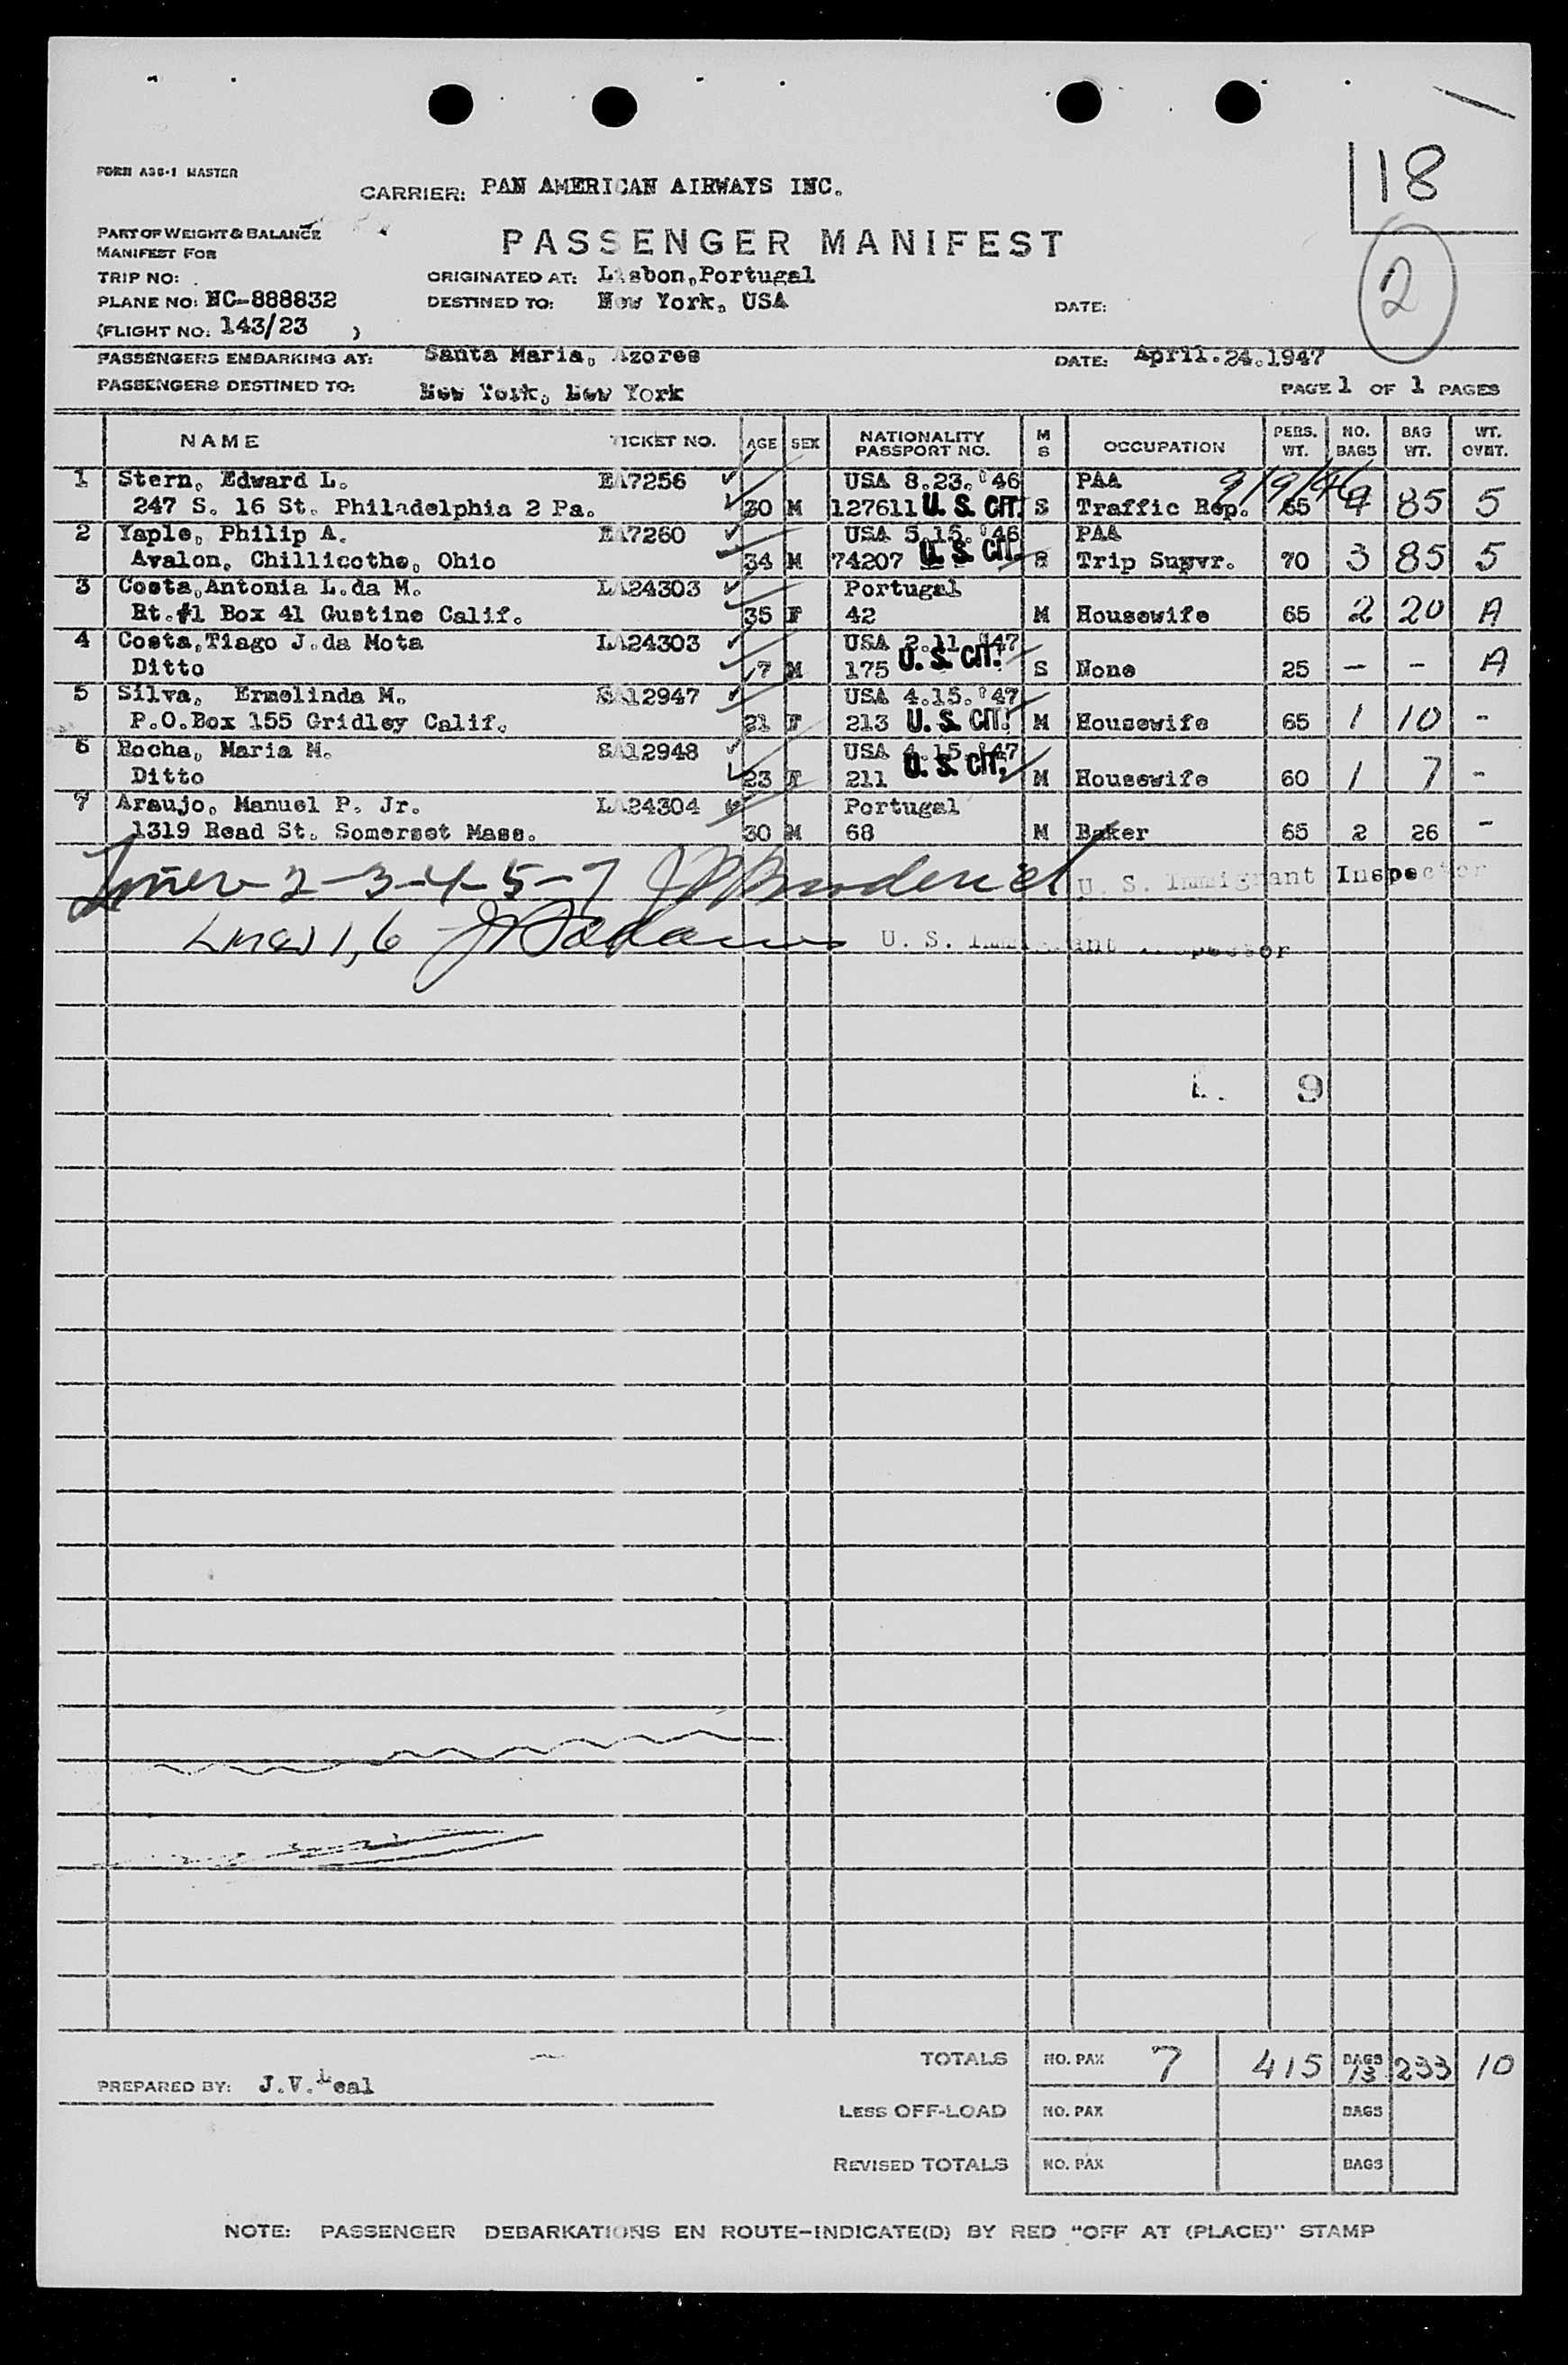 18
FORM A38-1 MASTER
CARRIER: PAN AMERICAN AIRWAYS INC.
PART OF WEIGHT & BALANCE
MANIFEST FOR
PASSENGER MANIFEST
2
TRIP NO:
ORIGINATED AT: Lisbon, Portugal
PLANE NO: NC-888832
DESTINED TO: New York, USA
DATE:
(FLIGHT NO: 143/23 )
PASSENGERS EMBARKING AT: Santa Maria, Azores
DATE: April.24.1947
PASSENGERS DESTINED TO: New York, New York
PAGE 1 OF 1 PAGES
NAME TICKET NO. AGE SEX NATIONALITY PASSPORT NO. M S OCCUPATION PERS. WT. NO. BAGS BAG WT. WT. OVRT.
1 Stern, Edward L. EA7256 USA 8.23.'46 PAA
247 S. 16 St. Philadelphia 2 Pa. 30 M 127611 U. S. CIT. S Traffic Rep. 65 4 85 5
2 Yaple, Philip A. EA7260 USA 5.15.'46 PAA
Avalon, Chillicothe, Ohio 34 M 74207 U. S. CIT. S Trip Supvr. 70 3 85 5
3 Costa,Antonia L.da M. LA24303 Portugal
Rt.#1 Box 41 Gustine Calif. 35 F 42 M Housewife 65 2 20 A
4 Costa,Tiago J.da Mota LA24303 USA 2.11.'47
Ditto 7 M 175 U. S. CIT. S None 25 - - A
5 Silva, Ermelinda M. SA12947 USA 4.15.'47
P.O.Box 155 Gridley Calif. 21 F 213 U. S. CIT. M Housewife 65 1 10 -
6 Rocha, Maria M. SA12948 USA 4.15.'47
Ditto 23 F 211 U. S. CIT. M Housewife 60 1 7 -
7 Araujo, Manuel P. Jr. LA24304 Portugal
1319 Read St. Somerset Mass. 30 M 68 M Baker 65 2 26 -
2-3-4-5-7 U. S. Immigrant Inspector
Lines 1,6 U. S. Immigrant Inspector
9
TOTALS NO. PAX 7 415 BAGS 13 233 10
PREPARED BY: J.V.Leal
LESS OFF-LOAD NO. PAX BAGS
REVISED TOTALS NO. PAX BAGS
NOTE: PASSENGER DEBARKATIONS EN ROUTE-INDICATE(D) BY RED "OFF AT (PLACE)" STAMP